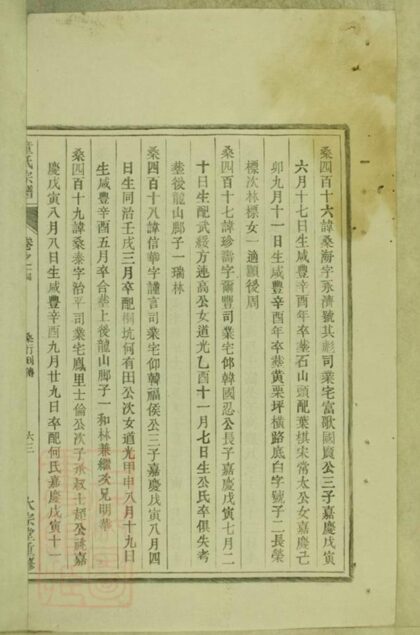 桑四百十六諱桑海字永濟號其彪司業宅富歌國賓公三子嘉慶戊寅
六月十七日生咸豐辛酉年卒葬石山頭配葉棋宋常太公女嘉慶己
卯九月十一日生咸豐辛酉年卒葬黄栗坪橫路底白字號子二長榮
標次林標女一適顯後周
桑四百十七諱珍壽字爾豐司業宅仰韓國忍公長子嘉慶戊寅七月二
十日生配武綏方連高公女道光乙酉十一月七日生公氏卒俱失考
葬後龍山脚子一瑞林
桑四百十八諱信華字謹言司業宅仰韓福侯公三子嘉慶戊寅八月四
日生同治壬戌三月卒配桐坑何有田公次女道光甲申八月十九日
生咸豐辛酉五月卒合葬上後龍山脚子一和林兼繼次兄明恭
桑四百十九諱桑泰字治平司業宅鳳里士倫公次子承叔士超公祧嘉
慶戊寅八月八日生咸豐辛酉九月廿九日卒配何氏嘉慶戊寅十一
氏宗譜
卷之
桑行
六三
大宗堂重修